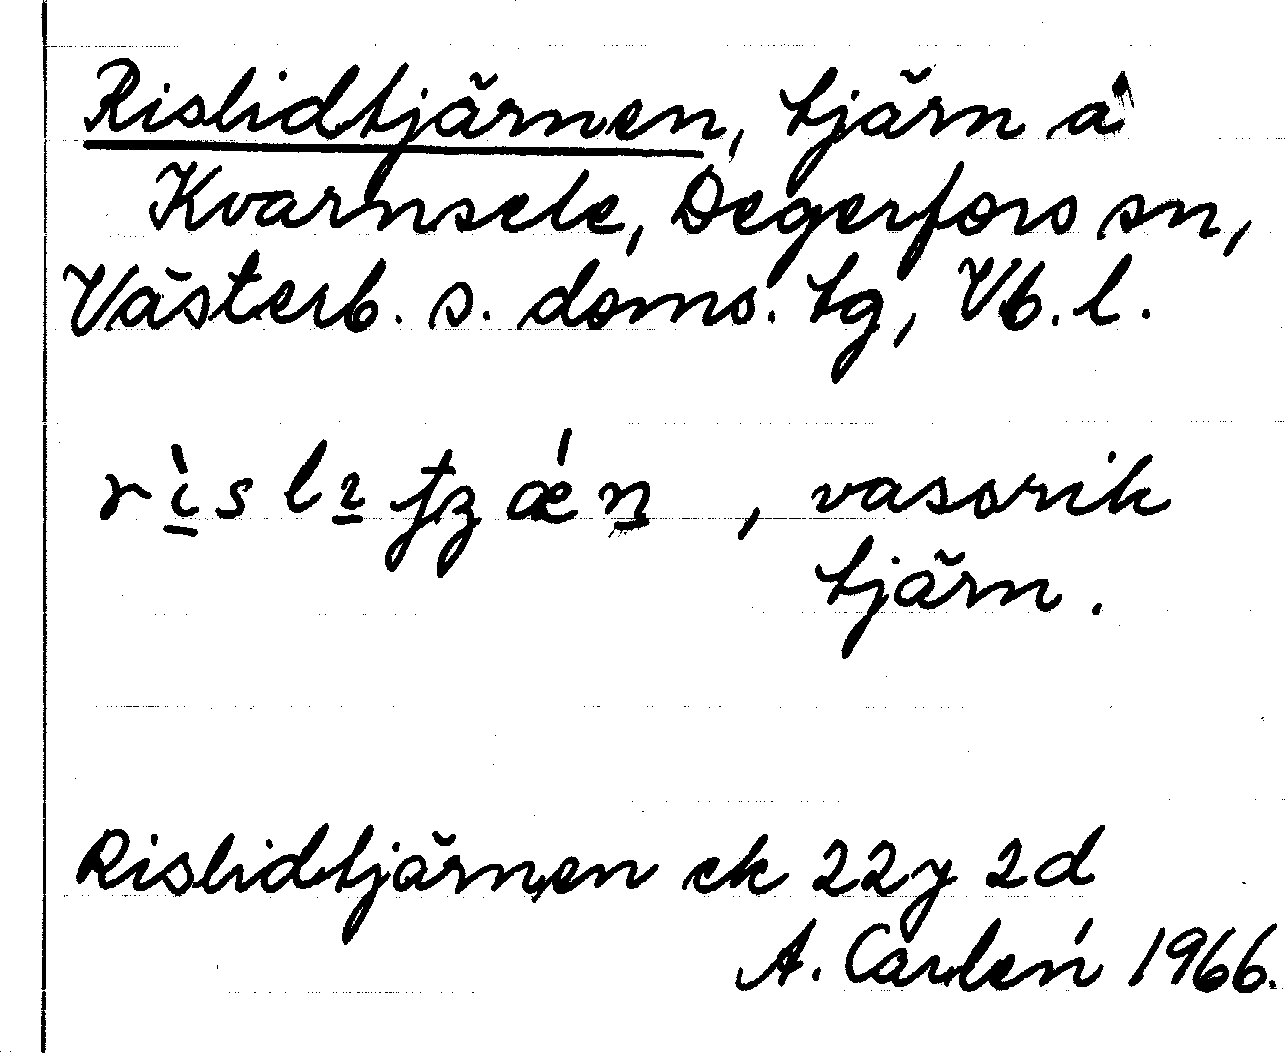 Rislidtjärnen, tjärn å
Kvarnsele, Degerfors sn,
Västerb. s. doms. tg, Vb. l.
, vasorik
tjärn.
Rislidtjärnen ek 22y 2d
A. Carlén 1966.